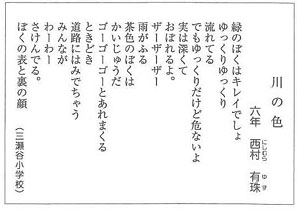 川の色
六年 西村 有珠
にしむら ゆず
緑のぼくはキレイでしょ
ゆっくりゆっくり
流れてる
でもゆっくりだけど危ないよ
実は深くて
おぼれるよ。
ザーザーザー
雨がふる
茶色のぼくは
かいじゅうだ
ゴーゴーゴーとあれまくる
ときどき
道路にはみでちゃう
みんなが
わーわー
さけんでる。
ぼくの表と裏の顔
（三瀬谷小学校）